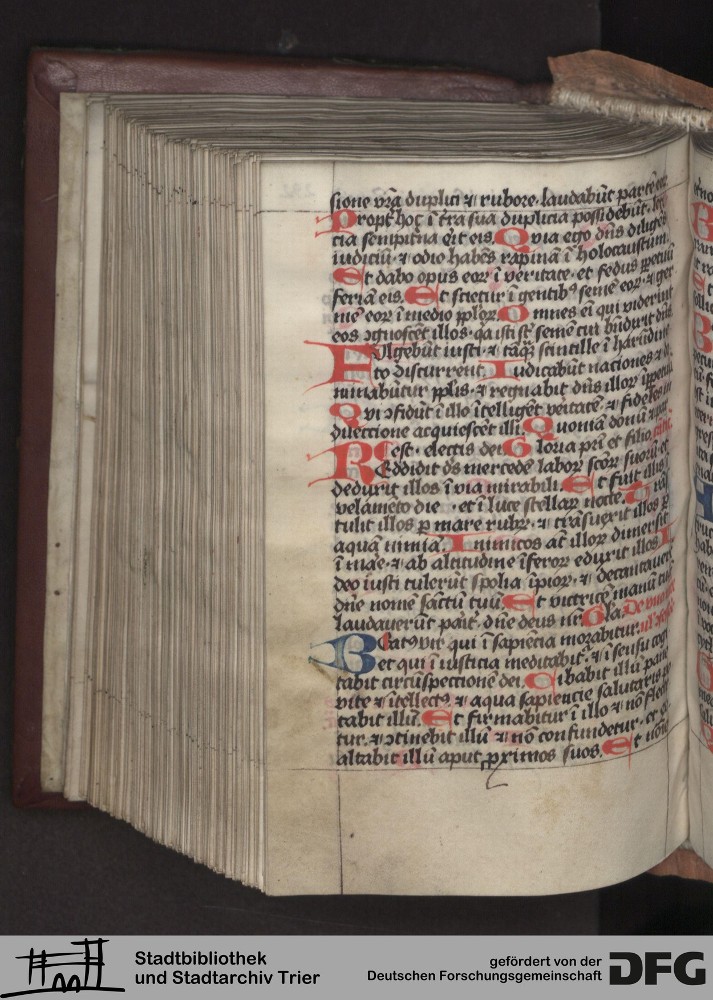 sione vr̃a duplici ⁊ rubore · laudabũt partẽ eor
Propt̃ hoc ĩ tr̃a sua duplicia possidebũt · leti
cia sempit̃na erit eis. Quia ego dñs diligẽs
iudiciũ · ⁊ odio habẽs rapinã ĩ holocaustum.
Et dabo opus eoꝝ ĩ veritate · et fedus ꝑpetuũ
feriã eis. Et scietur ĩ gentibꝰ semẽ eoꝝ · ⁊ ger
mẽ eoꝝ ĩ medio pploꝝ. Omnes qui viderint
eos ꝯgnoscẽt illos · qa isti st̃ semẽ cui bñdixit dñs
Fulgebũt iusti · ⁊ tãqꝫ scintille ĩ harũdine
to discurrent. Iudicabũt naciones ⁊ do
minabũtur pplis · ⁊ regnabit dñs illoꝝ ĩꝑpetuũ
Qui ꝯfidũt ĩ illo ĩtelligẽt veritatẽ · ⁊ fideles in
dileccione acquiescẽt illi. Quoniã donũ ⁊ pax
est · electis dei. Gloria pri et filio
Reddidit ds̃ mercedẽ laboꝝ scõꝝ suoꝝ · et
deduxit illos ĩ via mirabili. Et fuit illis ĩ
velamẽto diei · et ĩ luce stellaꝝ nocte. Trãs
tulit illos ꝑ mare rubꝝ · ⁊ trãsuexit illos ꝑ
aquã nimiã. Inimicos at̃ illoꝝ dimersit
ĩ mare · ⁊ ab altitudine ĩferoꝝ eduxit illos I
deo iusti tulerũt spolia ĩpioꝝ · ⁊ decantauerũt
dñe nomẽ sc̃tũ tuũ. Et victricẽ manũ tuã
laudauerũt parit̃ dñe deus nr̃. Gla. De vno
Beatꝰ vir qui ĩ sapiẽcia morabitur.
et qui ĩ iusticia meditabit̃ · ⁊ ĩ sensu cogi
tabit circũspectionẽ dei. Cibabit illũ pane
vite ⁊ ĩtellectꝰ ⁊ aqua sapiencie salutaris po
tabit illũ. Et firmabitur ĩ illo ⁊ nõ flecte
tur · ⁊ ꝯtinebit illũ ⁊ nõ confundetur · et ex
altabit illũ aput ꝓximos suos. Et nõie
Stadtbibliothek
und Stadtarchiv Trier
gefördert von der
Deutschen Forschungsgemeinschaft
DFG